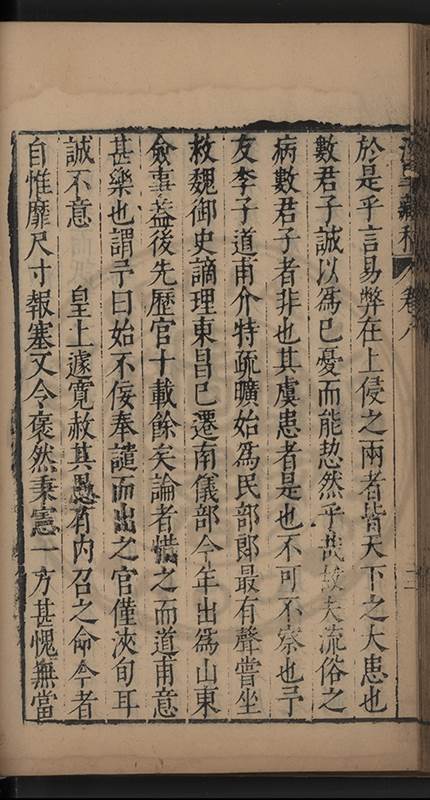 卷八
於是乎言易弊在上侵之兩者皆天下之大患也
數君子誠以爲已憂而能恝然乎哉故夫流俗之
病數君子者非也其虞患者是也不可不察也予
友李子道甫介特疏曠始爲民部郎最有聲嘗坐
救魏御史謫理東昌已遷南儀部今年出爲山東
僉事葢後先歷官十載餘矣論者惜之而道甫意
甚樂也謂予曰始不佞奉譴而出之官僅浹旬耳
誠不意 皇上遽寬赦其愚有內召之命今者
自惟靡尺寸報塞又令褎然秉憲一方甚愧無當